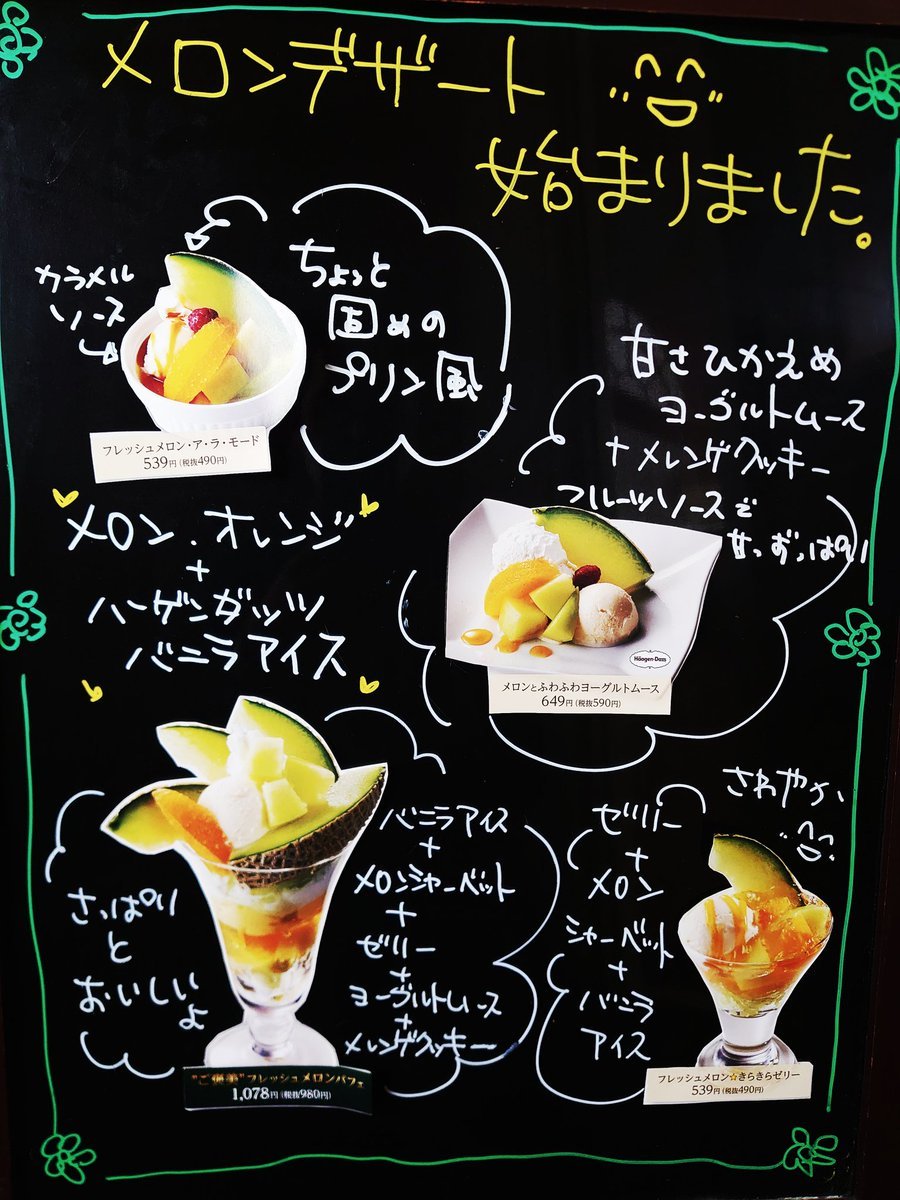 メロンデザート
始まりました。
カラメル
ソース
ちょっと
固めの
プリン風
フレッシュメロン・ア・ラ・モード
539円(税抜490円)
甘さひかえめ
ヨーグルトムース
+メレンゲクッキー
フルーツソースで
甘ずっぱい
Häagen-Dazs
メロンとふわふわヨーグルトムース
649円(税抜590円)
メロン.オレンジ
+
ハーゲンダッツ
バニラアイス
さっぱり
と
おいしい
よ
バニラアイス
+
メロンシャーベット
+
ゼリー
+
ヨーグルトムース
+
メレンゲクッキー
"ご褒美"フレッシュメロンパフェ
1,078円(税抜980円)
さわやか
ゼリー
+
メロン
シャーベット
+
バニラ
アイス
フレッシュメロン☆きらきらゼリー
539円(税抜490円)